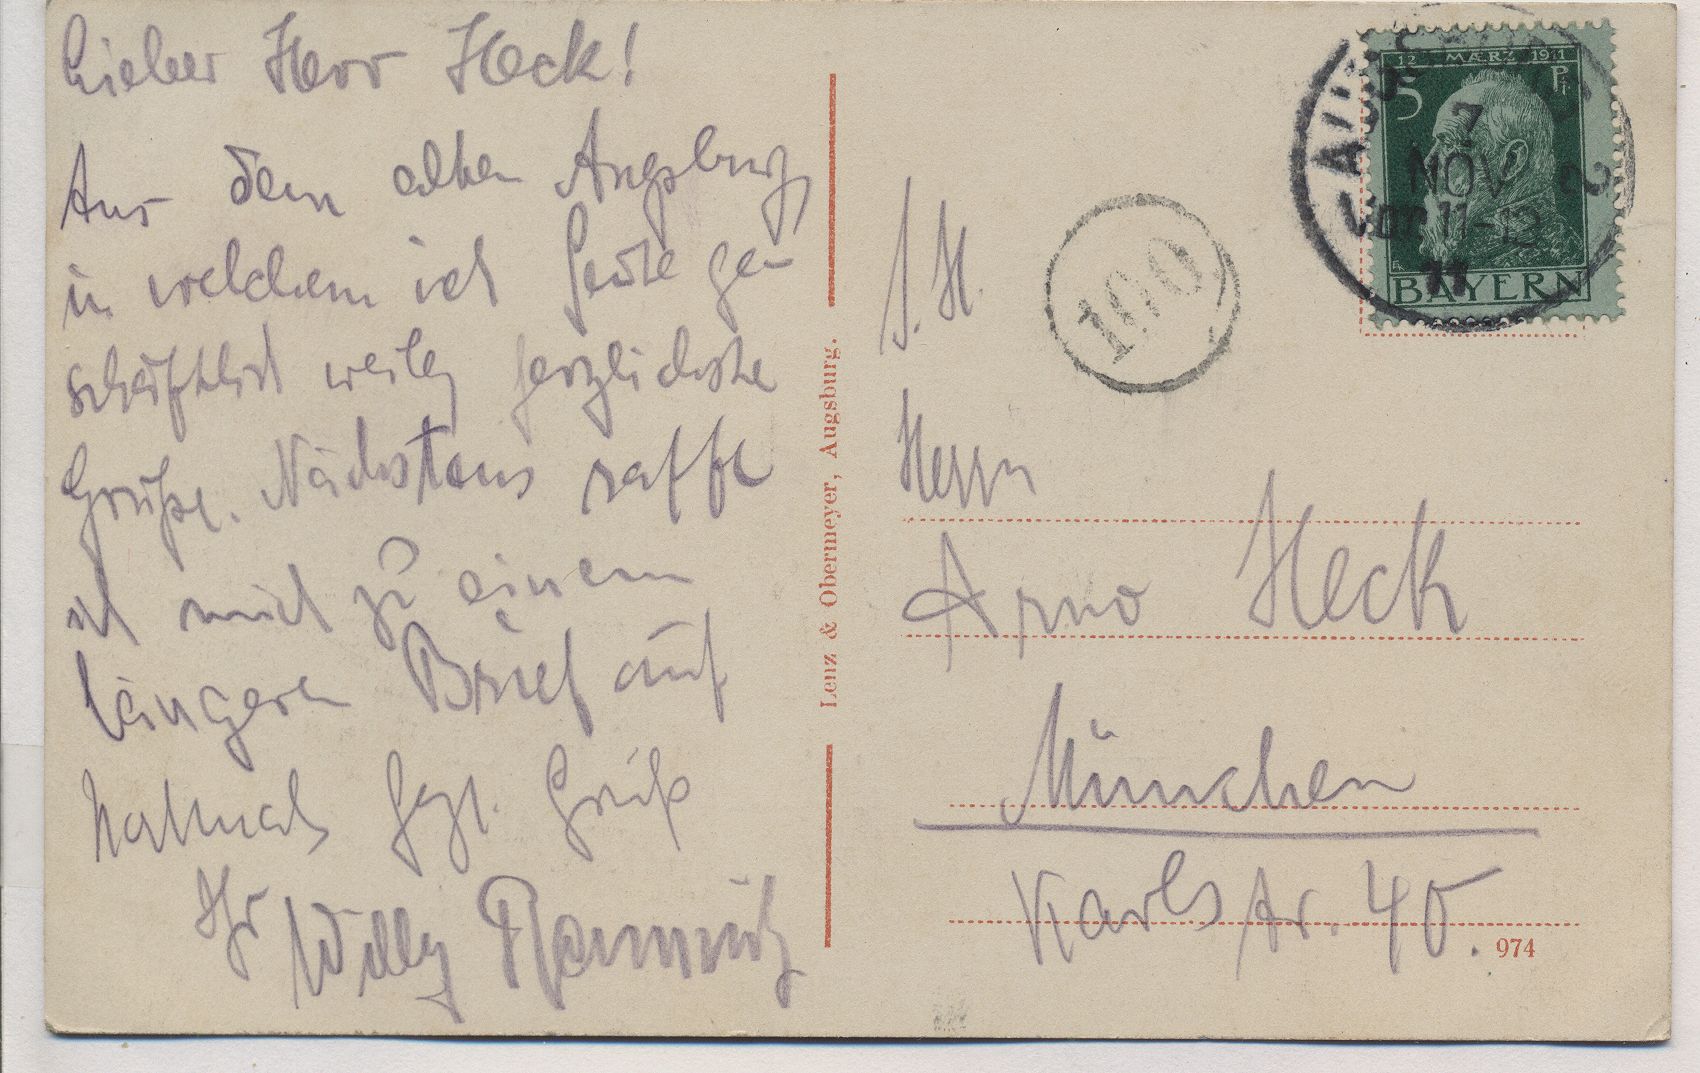 Lieber Herr Heck!
Aus dem alten Augsburg,
in welchem ich heute ge
schäftlich weile, herzlichste
Grüße. Nächstens raffe
ich mich zu einem
längeren Brief auf
Nochmals hzl. Gruß
Ihr Willy
Lenz & Obermeyer, Augsburg.
S. H.
Herrn
Arno Heck
München
Karlstr. 40.
974
100
12 MÆRZ 1911
5 Pf
BAYERN
7
NOV
11-12
11
2